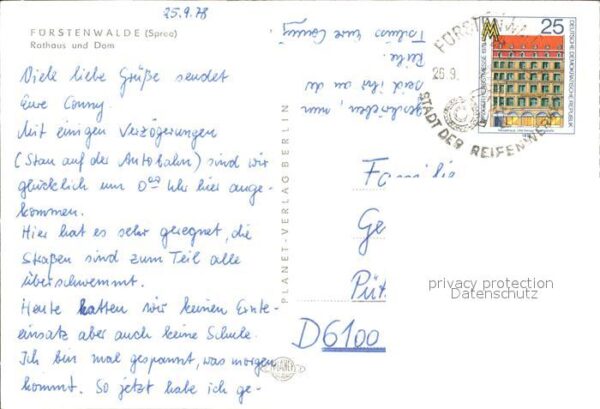 25.9.78
FÜRSTENWALDE (Spree)
Rathaus und Dom
Viele liebe Grüße sendet
Eure Conny.
Mit einigen Verzögerungen
(Stau auf der Autobahn) sind wir
glücklich um 0⁰⁰ Uhr hier ange-
kommen.
Hier hat es sehr geregnet, die
Straßen sind zum Teil alle
überschwemmt.
Heute hatten wir keinen Ernte-
einsatz aber auch keine Schule.
Ich bin mal gespannt, was morgen
kommt. So jetzt habe ich ge-
schrieben, nun
seid ihr an der
Reihe.
Tschüß Eure Conny
PLANET-VERLAG BERLIN
FÜRSTENWA
26.9.
STADT DER REIFENWER
25
DEUTSCHE DEMOKRATISCHE REPUBLIK
Familie
Ge
Püt
D6100
privacy protection
Datenschutz